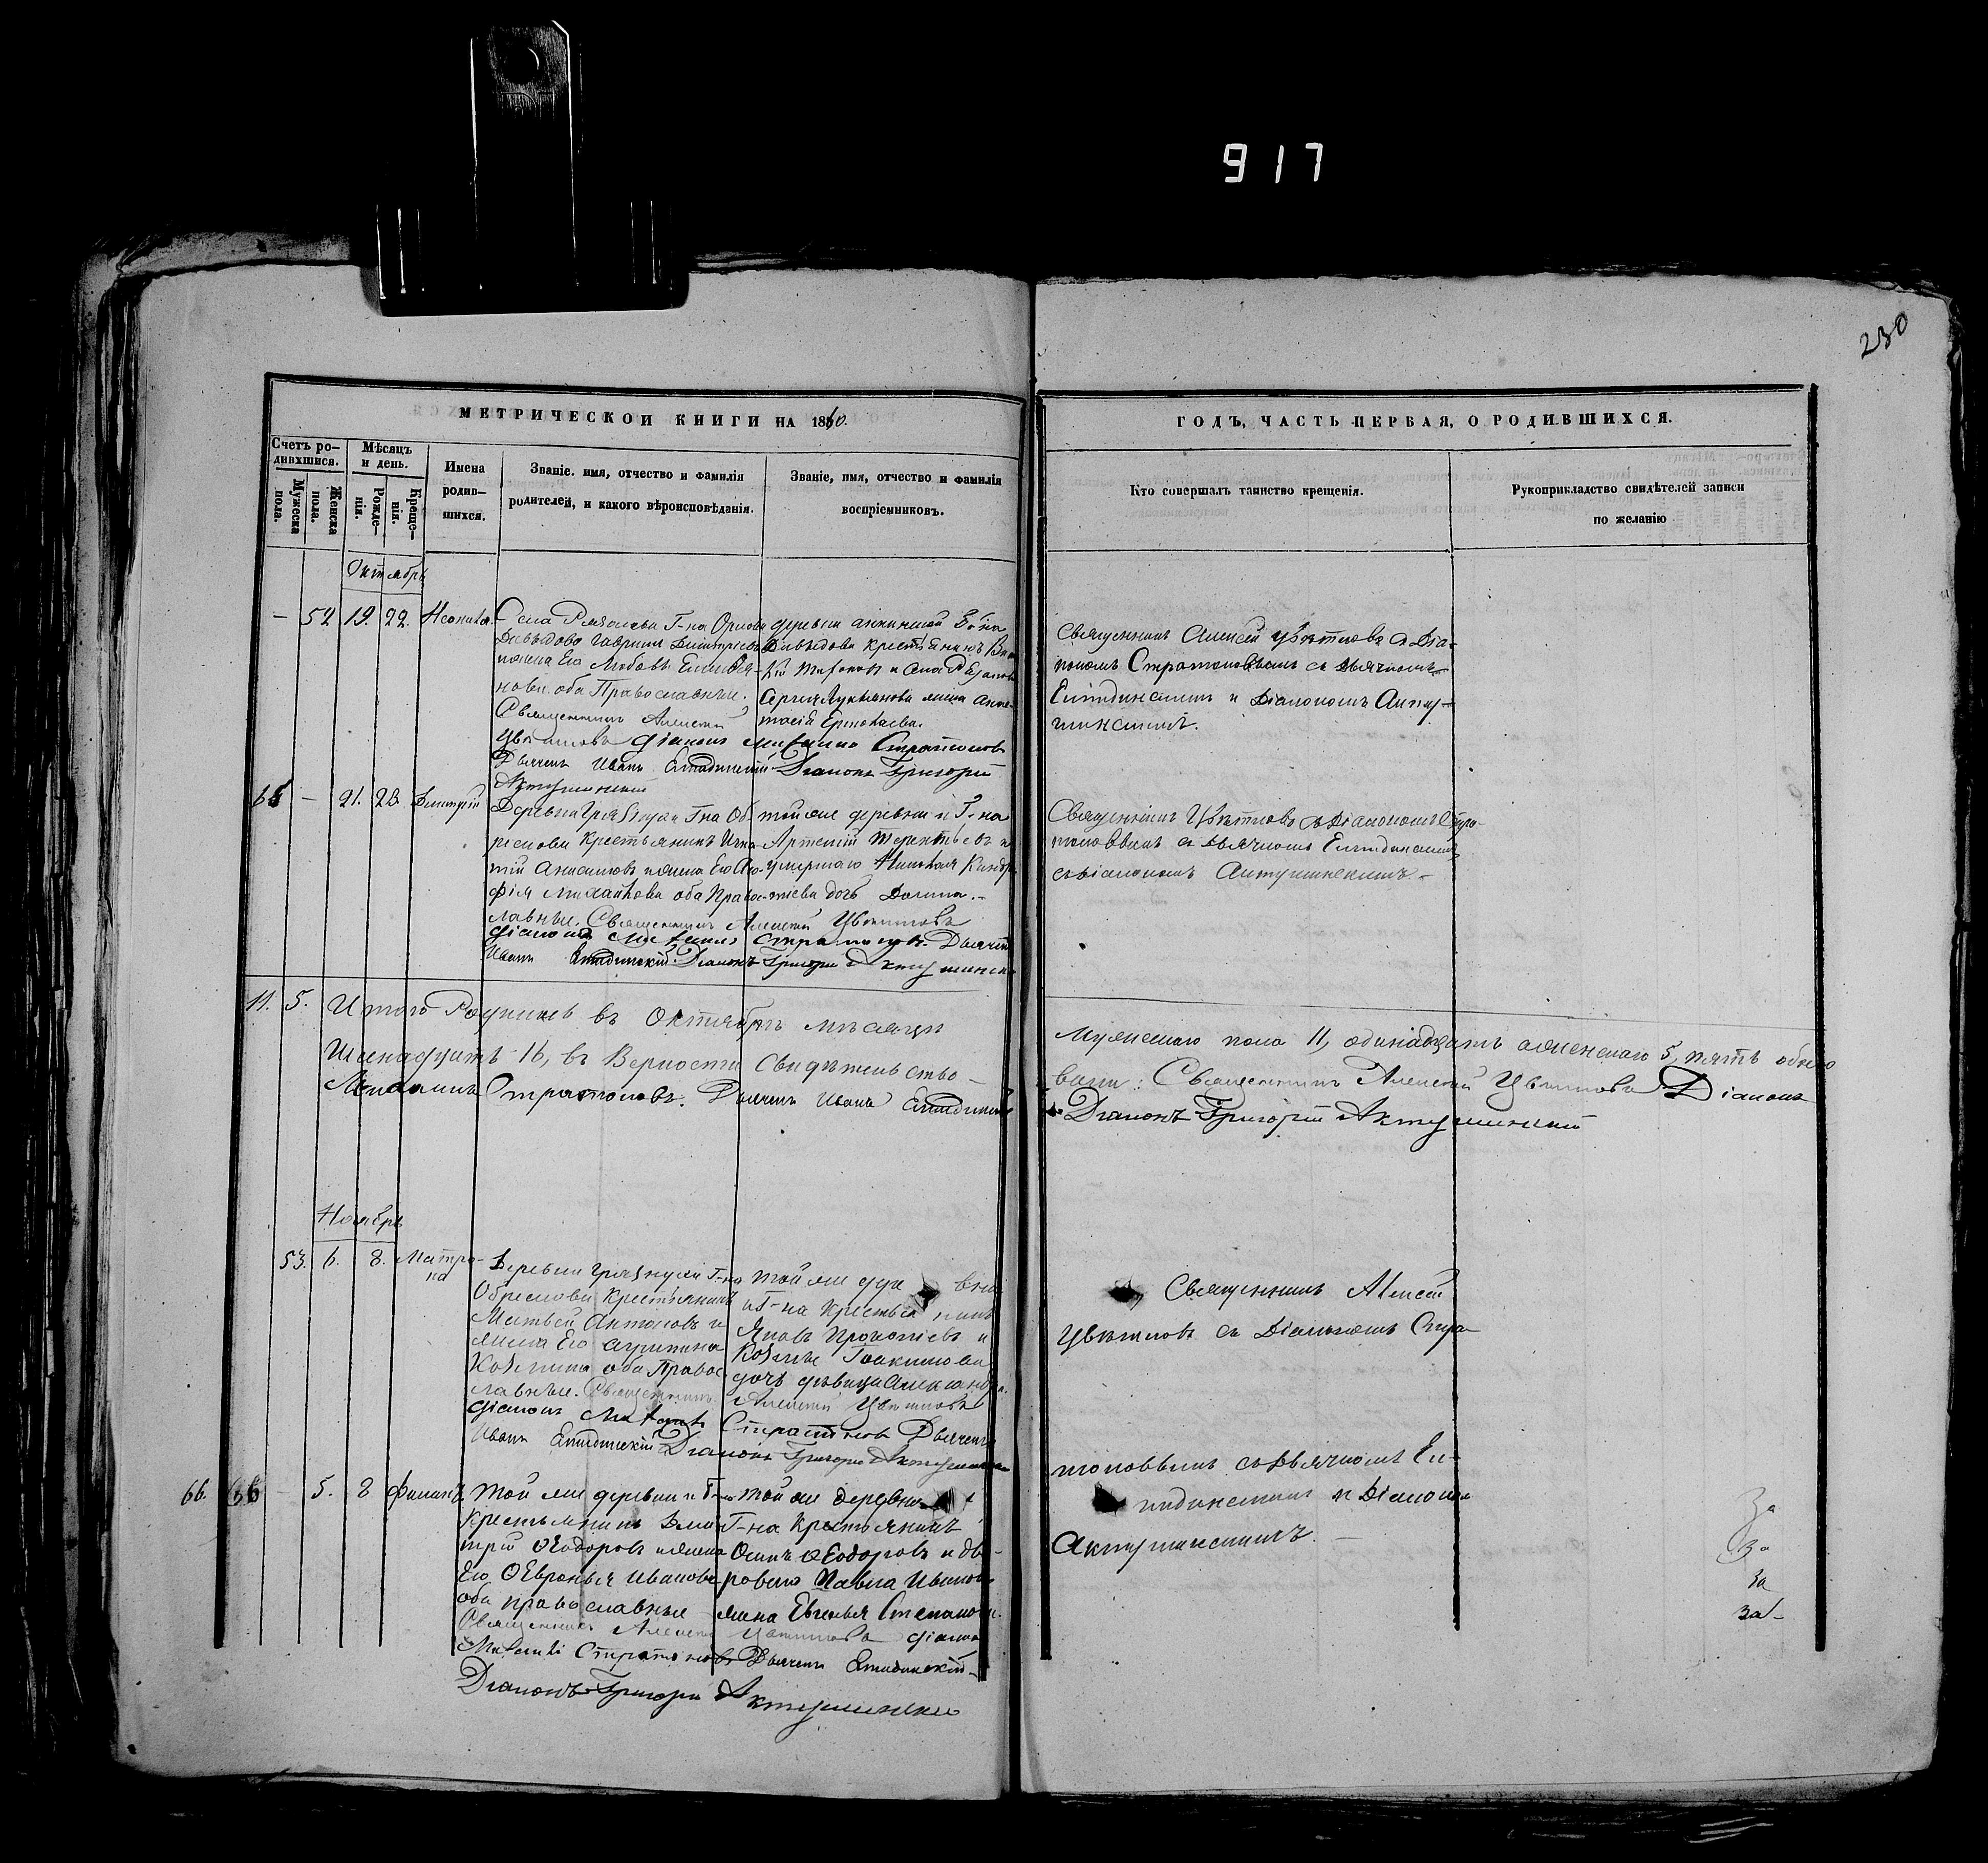 917
230
МЕТРИЧЕСКОЙ КНИГИ НА 1860.
ГОДЪ, ЧАСТЬ ПЕРВАЯ, О РОДИВШИХСЯ.
Счетъ ро-
дивхшися.
Мѣсяцъ
и день.
Мужеска
пола.
Женска
пола.
Рожде-
нія.
Креще-
нія.
Имена
родив-
шихся.
Званіе. имя, отчество и фамилія
родителей, и какого вѣроисповѣданія.
Званіе, имя, отчество и фамилія
воспріемниковъ.
Кто совершалъ таинство крещенія.
Рукоприкладство свидѣтелей записи
по желанію
Октябрь
— 52 19. 22.
Села Г-на
Давыдова Гавріилъ Димитріевъ
жена Его Любовь
оба Православные.
Священникъ Алексей
Цветтовъ Діаконъ Михаилъ Стратоновъ
Дьячекъ Иванъ Діаконъ Григорій
Актушинскій
деревни Г-на
Давыдова крестьянинъ
жена
Священникъ Алексей Цвѣтковъ съ Діа-
кономъ Стратоновымъ съ дьячкомъ
и Діакономъ Акту-
шинскимъ.
65 — 21. 23. Димитрій
Деревни Грязнухи Г-на Об-
рескова Крестьянинъ Игна-
тій и жена Его
Михайлова оба Право-
славные. Священникъ Алексей Цветковъ
Діаконъ Михаилъ Стратоновъ Дьячекъ
Иванъ Діаконъ Григорій Актушинскій
той же деревни и Г-на
Артемій Терентьевъ и
умершаго Николая
дочь
Священникъ Цвѣтковъ съ Діакономъ Стра-
тоновымъ съ дьячкомъ
съ діакономъ Актушинскимъ.
11. 5. Итого Родились въ Октябрѣ мѣсяцѣ
Мужескаго пола 11, одинадцать а женскаго 5, пять обоего
Шенадцать 16, въ Верности Свидѣтельство-
вали: Священникъ Алексей Цветковъ Діаконъ
Михаилъ Стратоновъ. Дьячекъ Иванъ
Діаконъ Григорій Актушинскій
Ноябрь
53. 6. 8. Матро-
на
Деревни Грязнухи Г-на
Обрескова крестьянинъ
Матвей Антоновъ и
жена Его
Козмина оба Правос-
лавные. Священникъ Алексей Цветковъ
Діаконъ Михаилъ Стратоновъ Дьячекъ
Иванъ Діаконъ Григорій Актушинскій
той же
и Г-на Крестьянинъ
Яковъ Прокопіевъ и
Козмы Іоакимова
дочь девица Александра.
Священникъ Алексей
Цветковъ съ Діакономъ Стра-
тоновымъ съ дьячкомъ
и Діакономъ
Актушинскимъ. —
66. 66 — 5. 8 Филипъ
Той же деревни и Г-на
Крестьянинъ Дми-
трій Ѳеодоровъ и жена
Его Ѳевронья Иванова
оба православные
Священникъ Алексей Цветковъ Діаконъ
Михаилъ Стратоновъ Дьячекъ
Діаконъ Григорій Актушинскій
той же деревни
Г-на Крестьянинъ
Осипъ Ѳеодоровъ и дво-
роваго Павла Иванова
жена Евгенья Степанова.
За
За
За
За